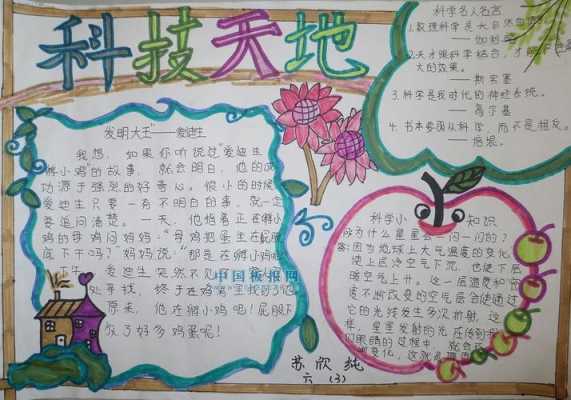 科技天地
科学名人名言
1.数理科学是大自然
——伽利略
2.天才跟科学结合,才能
大的效果。
——斯宾塞
3.科学是我时代的神经系统。
——高尔基
4.书本要随从科学,而不是相反。
——培根。
发明大王——爱迪生
我想,如果你听说过"爱迪生
孵小鸡"的故事,就会明白,他的成
功源于强烈的好奇心。很小的时候
爱迪生只要一有不明白的事,就一定
要追问清楚。一天,他指着正在孵小
鸡的母鸡问妈妈:"母鸡把蛋坐在屁股
底下干吗?"妈妈说:"那是在孵小鸡呢
午,爱迪生突然不见
处寻找,终于在鸡窝里找到了他
原来,他在孵小鸡呢!屁股下
放了好多鸡蛋呢!
中国板报网
科学小知识
问为什么星星会一闪一闪的?
答:因为地球上大气温度的变化
使上层冷空气下沉,也使下层
暖空气上升。这一层温度和密
度不断改变的空气层会使通过
它的光线发生多次折射,这
样,星星发射的光在传到
们眼睛的过程中,就会
变化,这就是
苏欣纯
六(3)